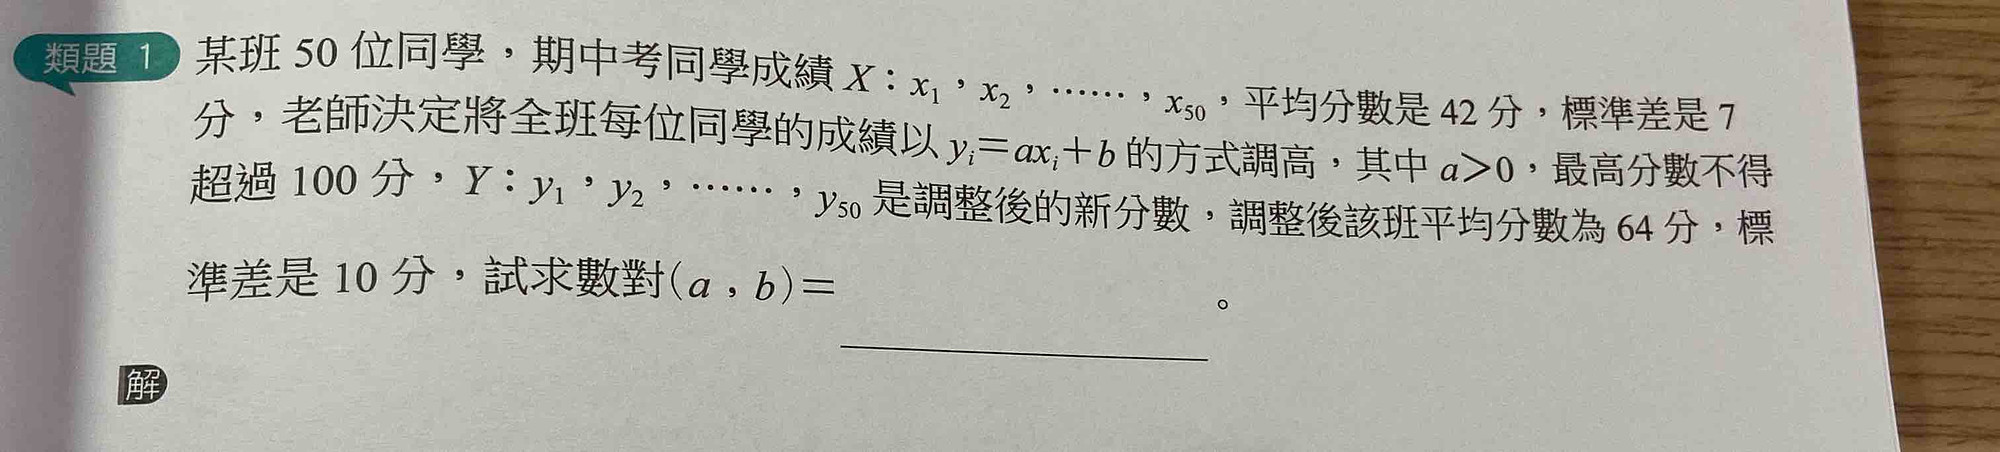 類題 1 某班 50 位同學，期中考同學成績 X：x₁，x₂，……，x₅₀，平均分數是 42 分，標準差是 7
分，老師決定將全班每位同學的成績以 yᵢ＝axᵢ＋b 的方式調高，其中 a＞0，最高分數不得
超過 100 分，Y：y₁，y₂，……，y₅₀ 是調整後的新分數，調整後該班平均分數為 64 分，標
準差是 10 分，試求數對(a，b)＝＿＿＿＿＿＿。
解